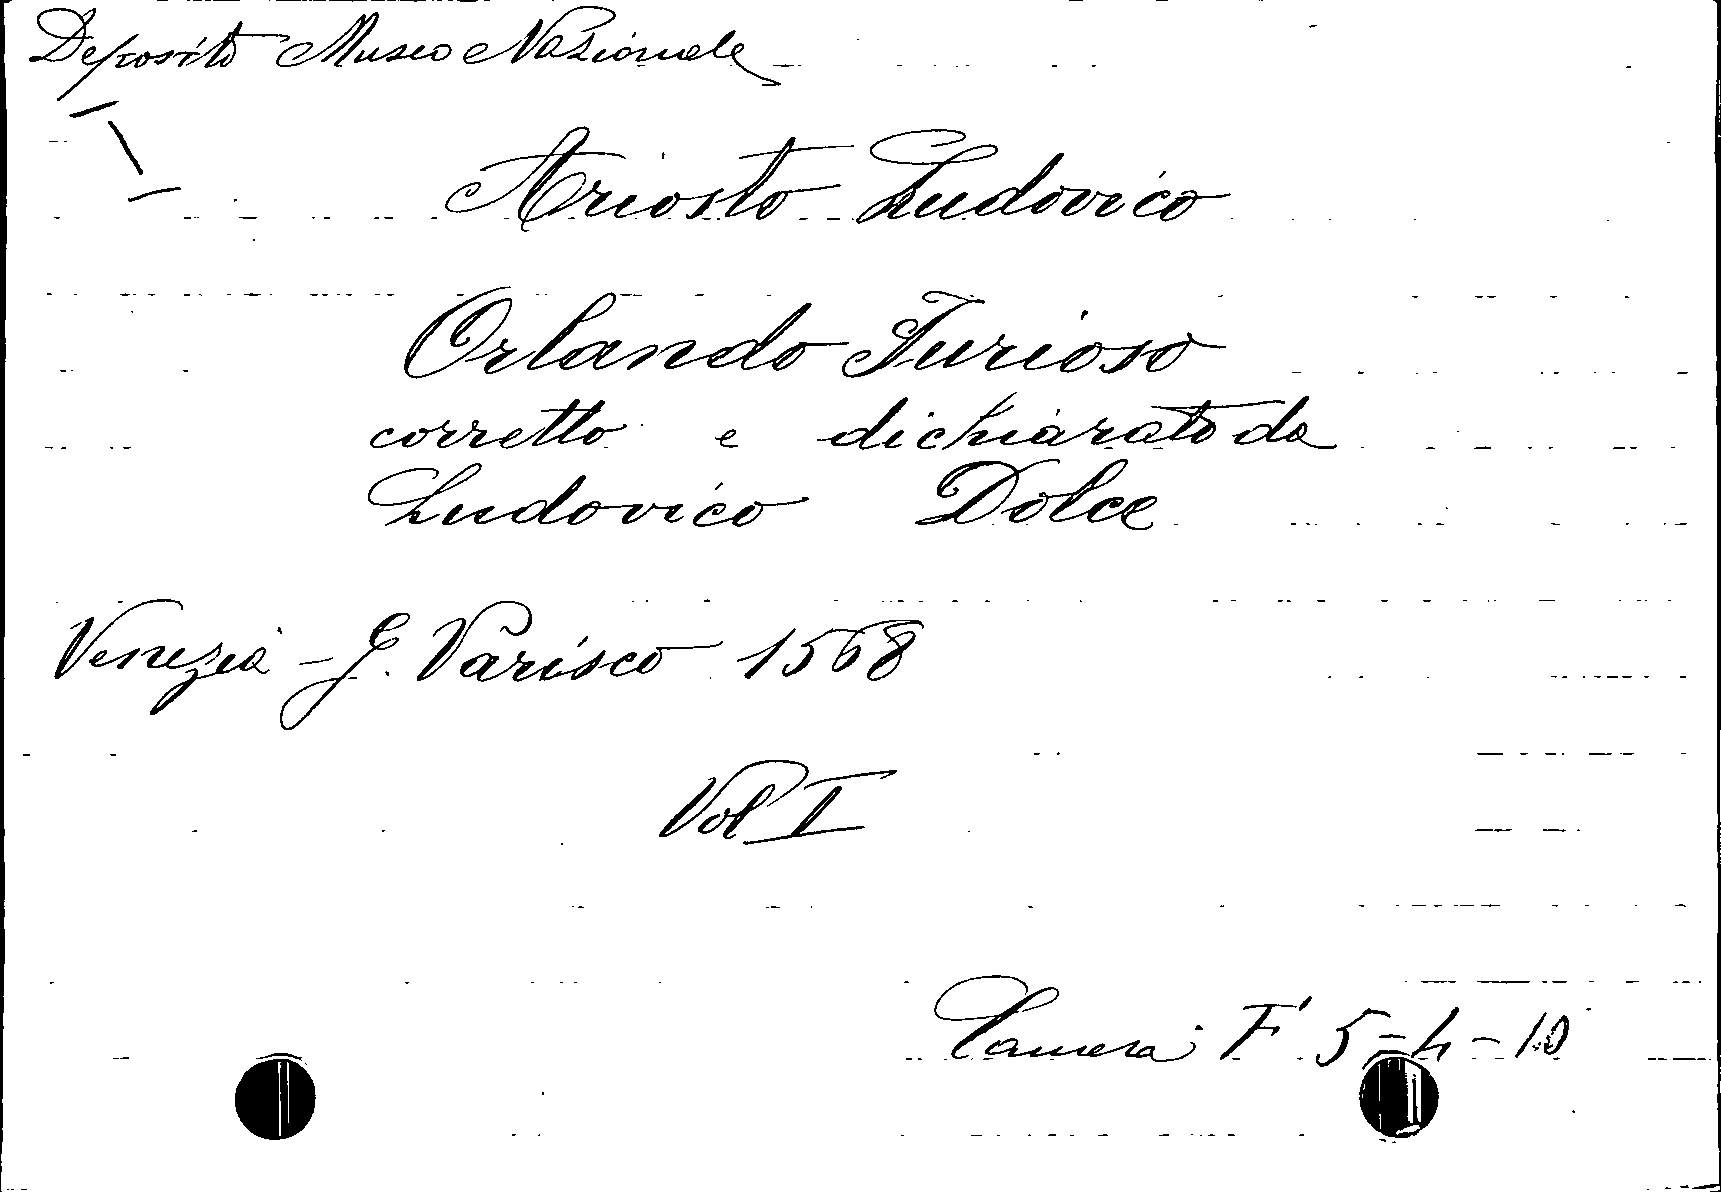 Deposito Museo Nazionale
Ariosto Ludovico
Orlando Furioso
corretto e dichiarato da
Ludovico Dolce
Venezia - G. Varisco 1568
Vol I
Camera F 5-4-10